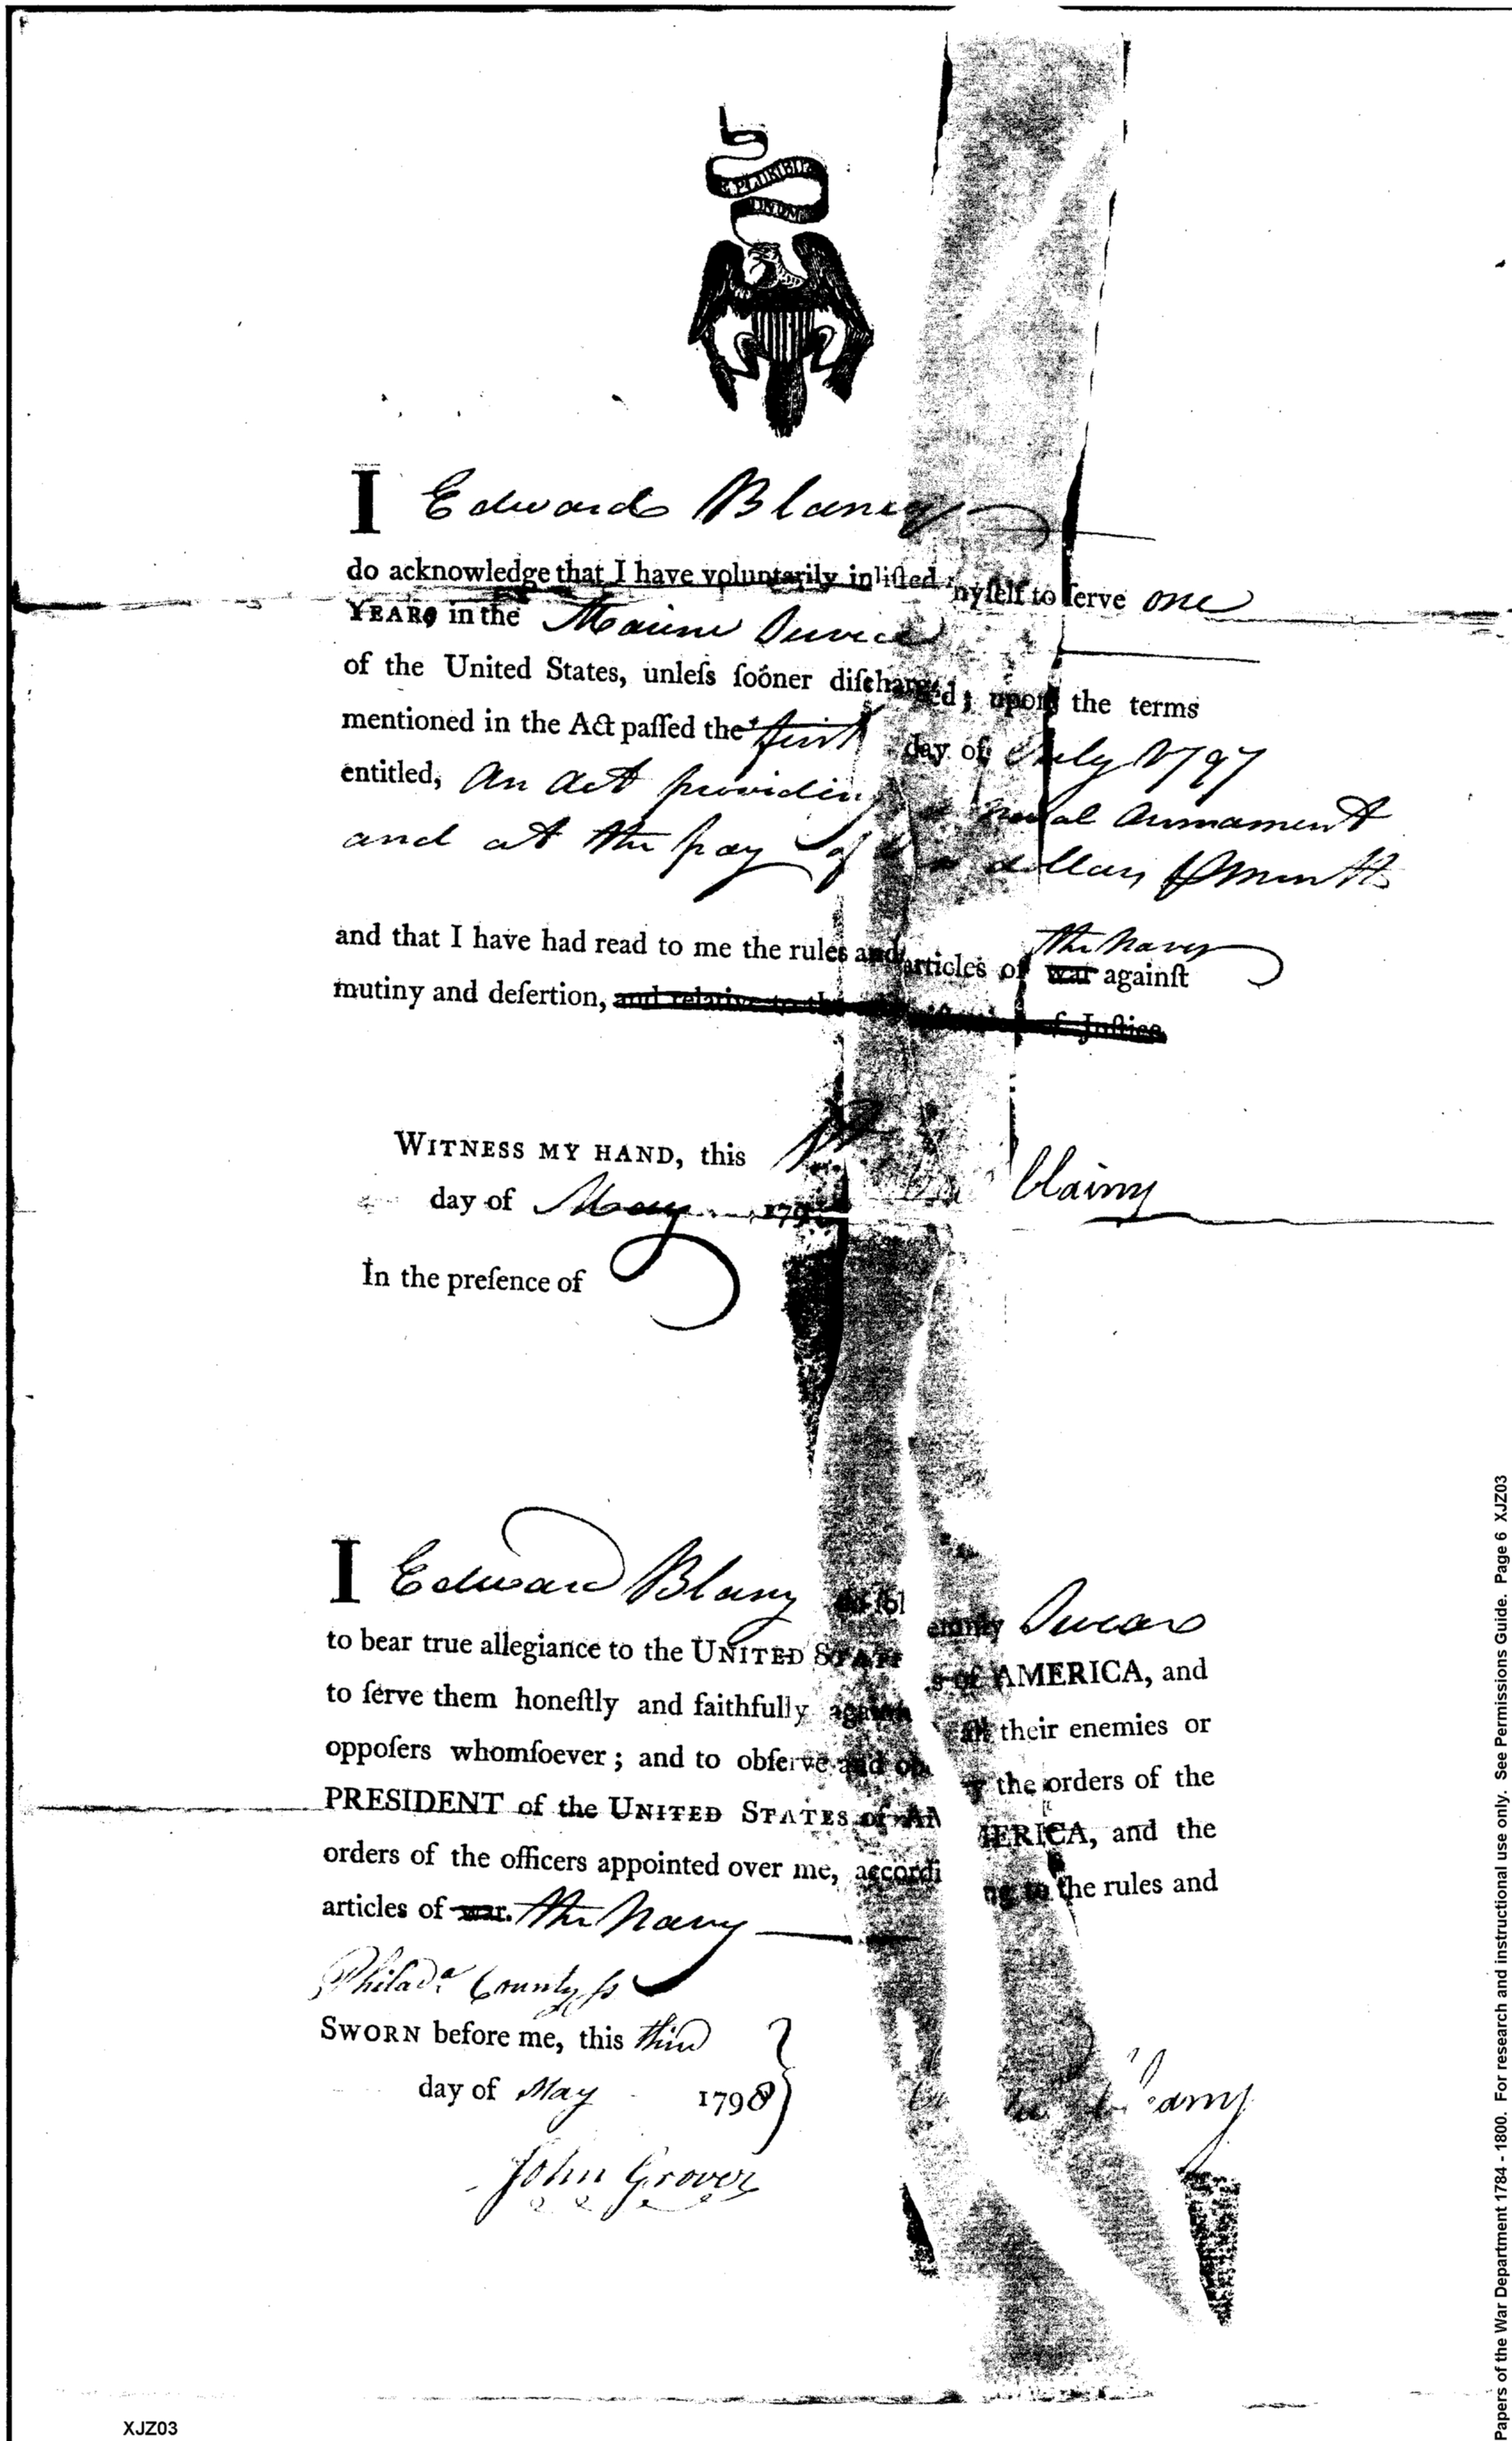 E PLURIBUS
UNUM
I Edward Blaney
do acknowledge that I have voluntarily inliſted myſelf to ſerve one
YEARS in the Marine Service
of the United States, unleſs ſooner diſcharged; upon the terms
mentioned in the Act paſſed the first day of July 1797
entitled, An Act providing naval Armament
and at the pay of dollars ⅌ Month
and that I have had read to me the rules and articles of war the Navy againſt
mutiny and deſertion, and relative to the of Juſtice
WITNESS MY HAND, this
day of May 179 blainy
In the preſence of
I Edward Blany do ſolemnly Swear
to bear true allegiance to the UNITED STATES of AMERICA, and
to ſerve them honeſtly and faithfully againſt all their enemies or
oppoſers whomſoever; and to obſerve and obey the orders of the
PRESIDENT of the UNITED STATES of AMERICA, and the
orders of the officers appointed over me, according to the rules and
articles of war. the Navy
Philada. County ss
SWORN before me, this third
day of May 1798
John Grover
XJZ03
Papers of the War Department 1784 - 1800. For research and instructional use only. See Permissions Guide. Page 6 XJZ03